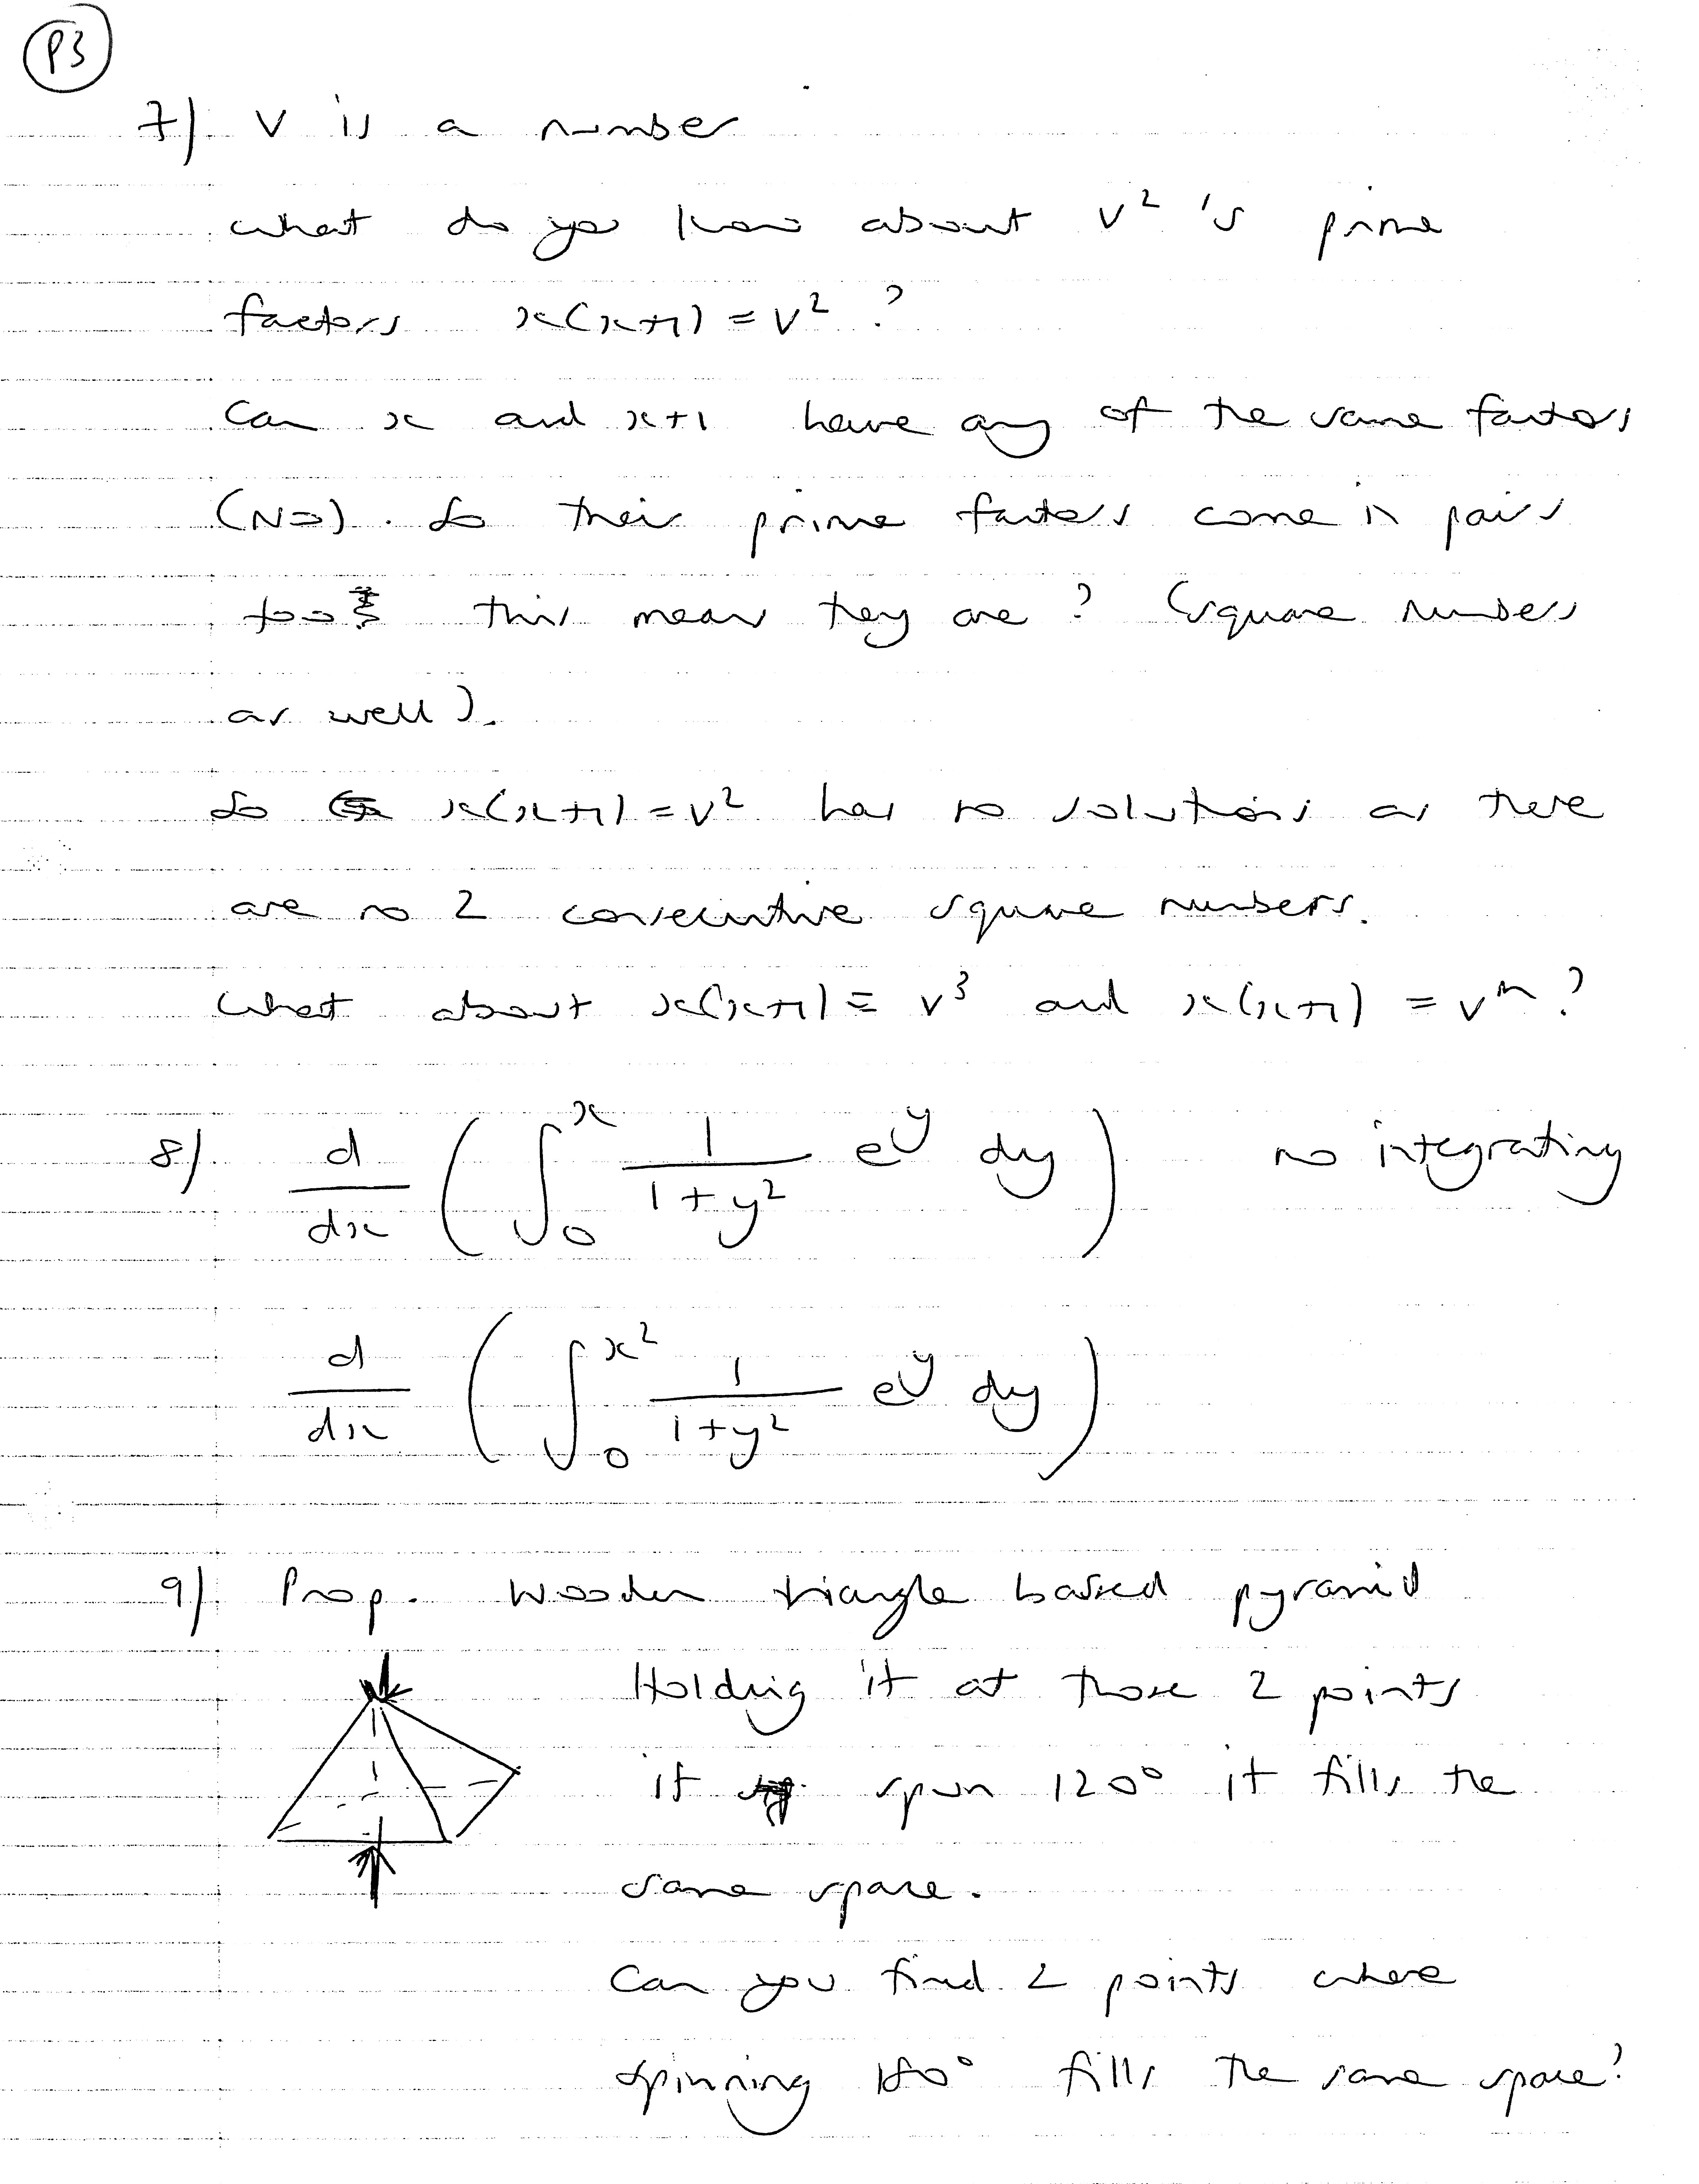 P3
7) v is a number
what do you know about v² 's prime
factors x(x+1) = v² ?
Can x and x+1 have any of the same factors
(No). So their prime factors come in pairs
too this means they are? (square numbers
as well).
So x(x+1) = v² has no solutions as there
are no 2 consecutive square numbers.
What about x(x+1) = v³ and x(x+1) = vⁿ ?
8) d/dx ( ∫₀ˣ 1/(1+y²) eʸ dy ) no integrating
d/dx ( ∫₀^(x²) 1/(1+y²) eʸ dy )
9) Prop. Wooden triangle based pyramid
Holding it at those 2 points
if spun 120° it fills the
same space.
Can you find 2 points where
spinning 180° fills the same space?